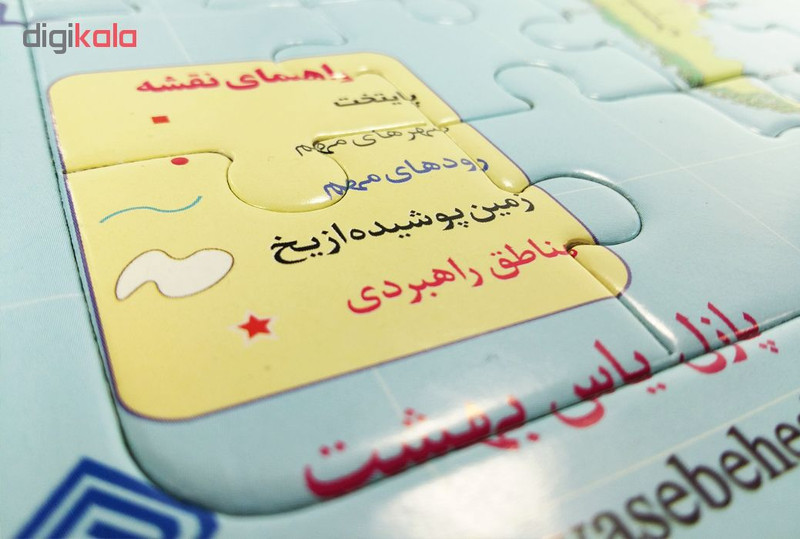 digikala
راهنمای نقشه
پایتخت
شهرهای مهم
رودهای مهم
زمین پوشیده از یخ
مناطق راهبردی
پازل یاس بهشت